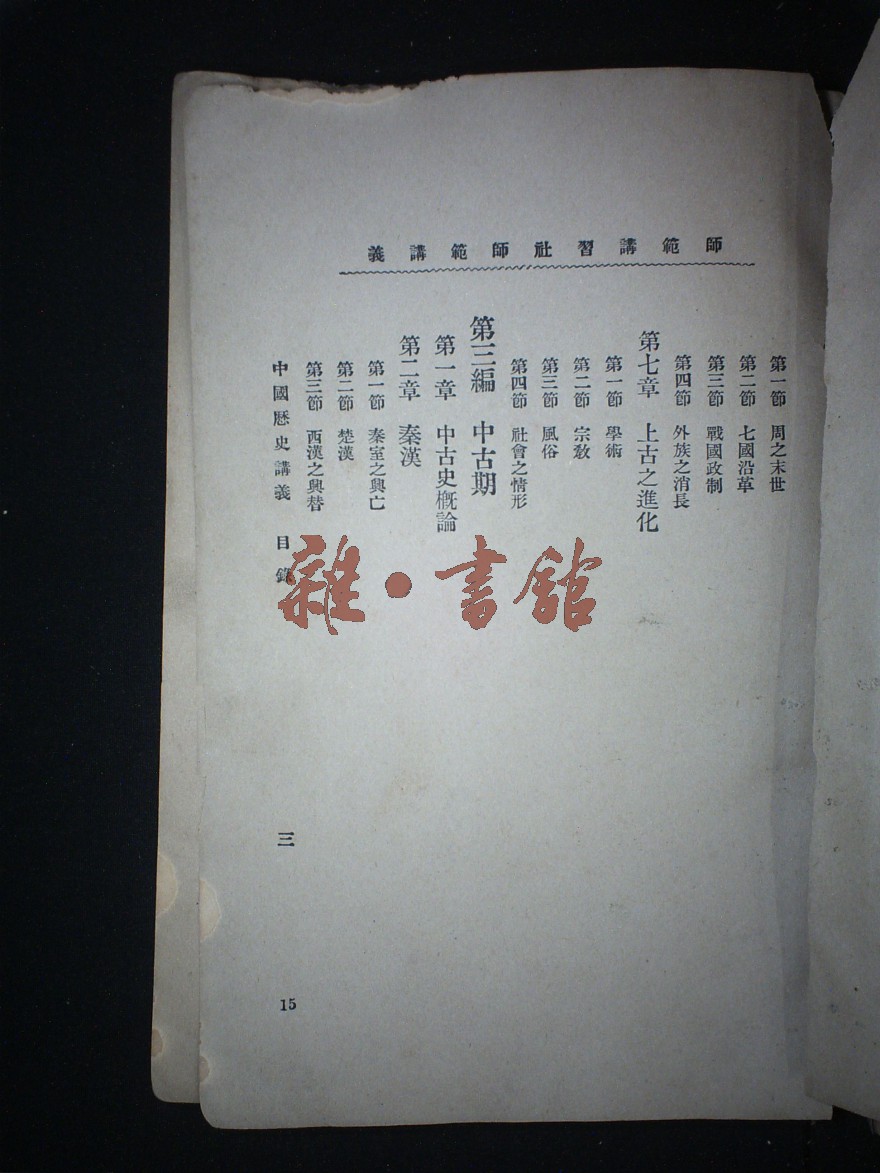 師範講習社師範講義
第一節　周之末世
第二節　七國沿革
第三節　戰國政制
第四節　外族之消長
第七章　上古之進化
第一節　學術
第二節　宗敎
第三節　風俗
第四節　社會之情形
第三編　中古期
第一章　中古史概論
第二章　秦漢
第一節　秦室之興亡
第二節　楚漢
第三節　西漢之興替
中國歷史講義　目錄
三
15
雜·書館